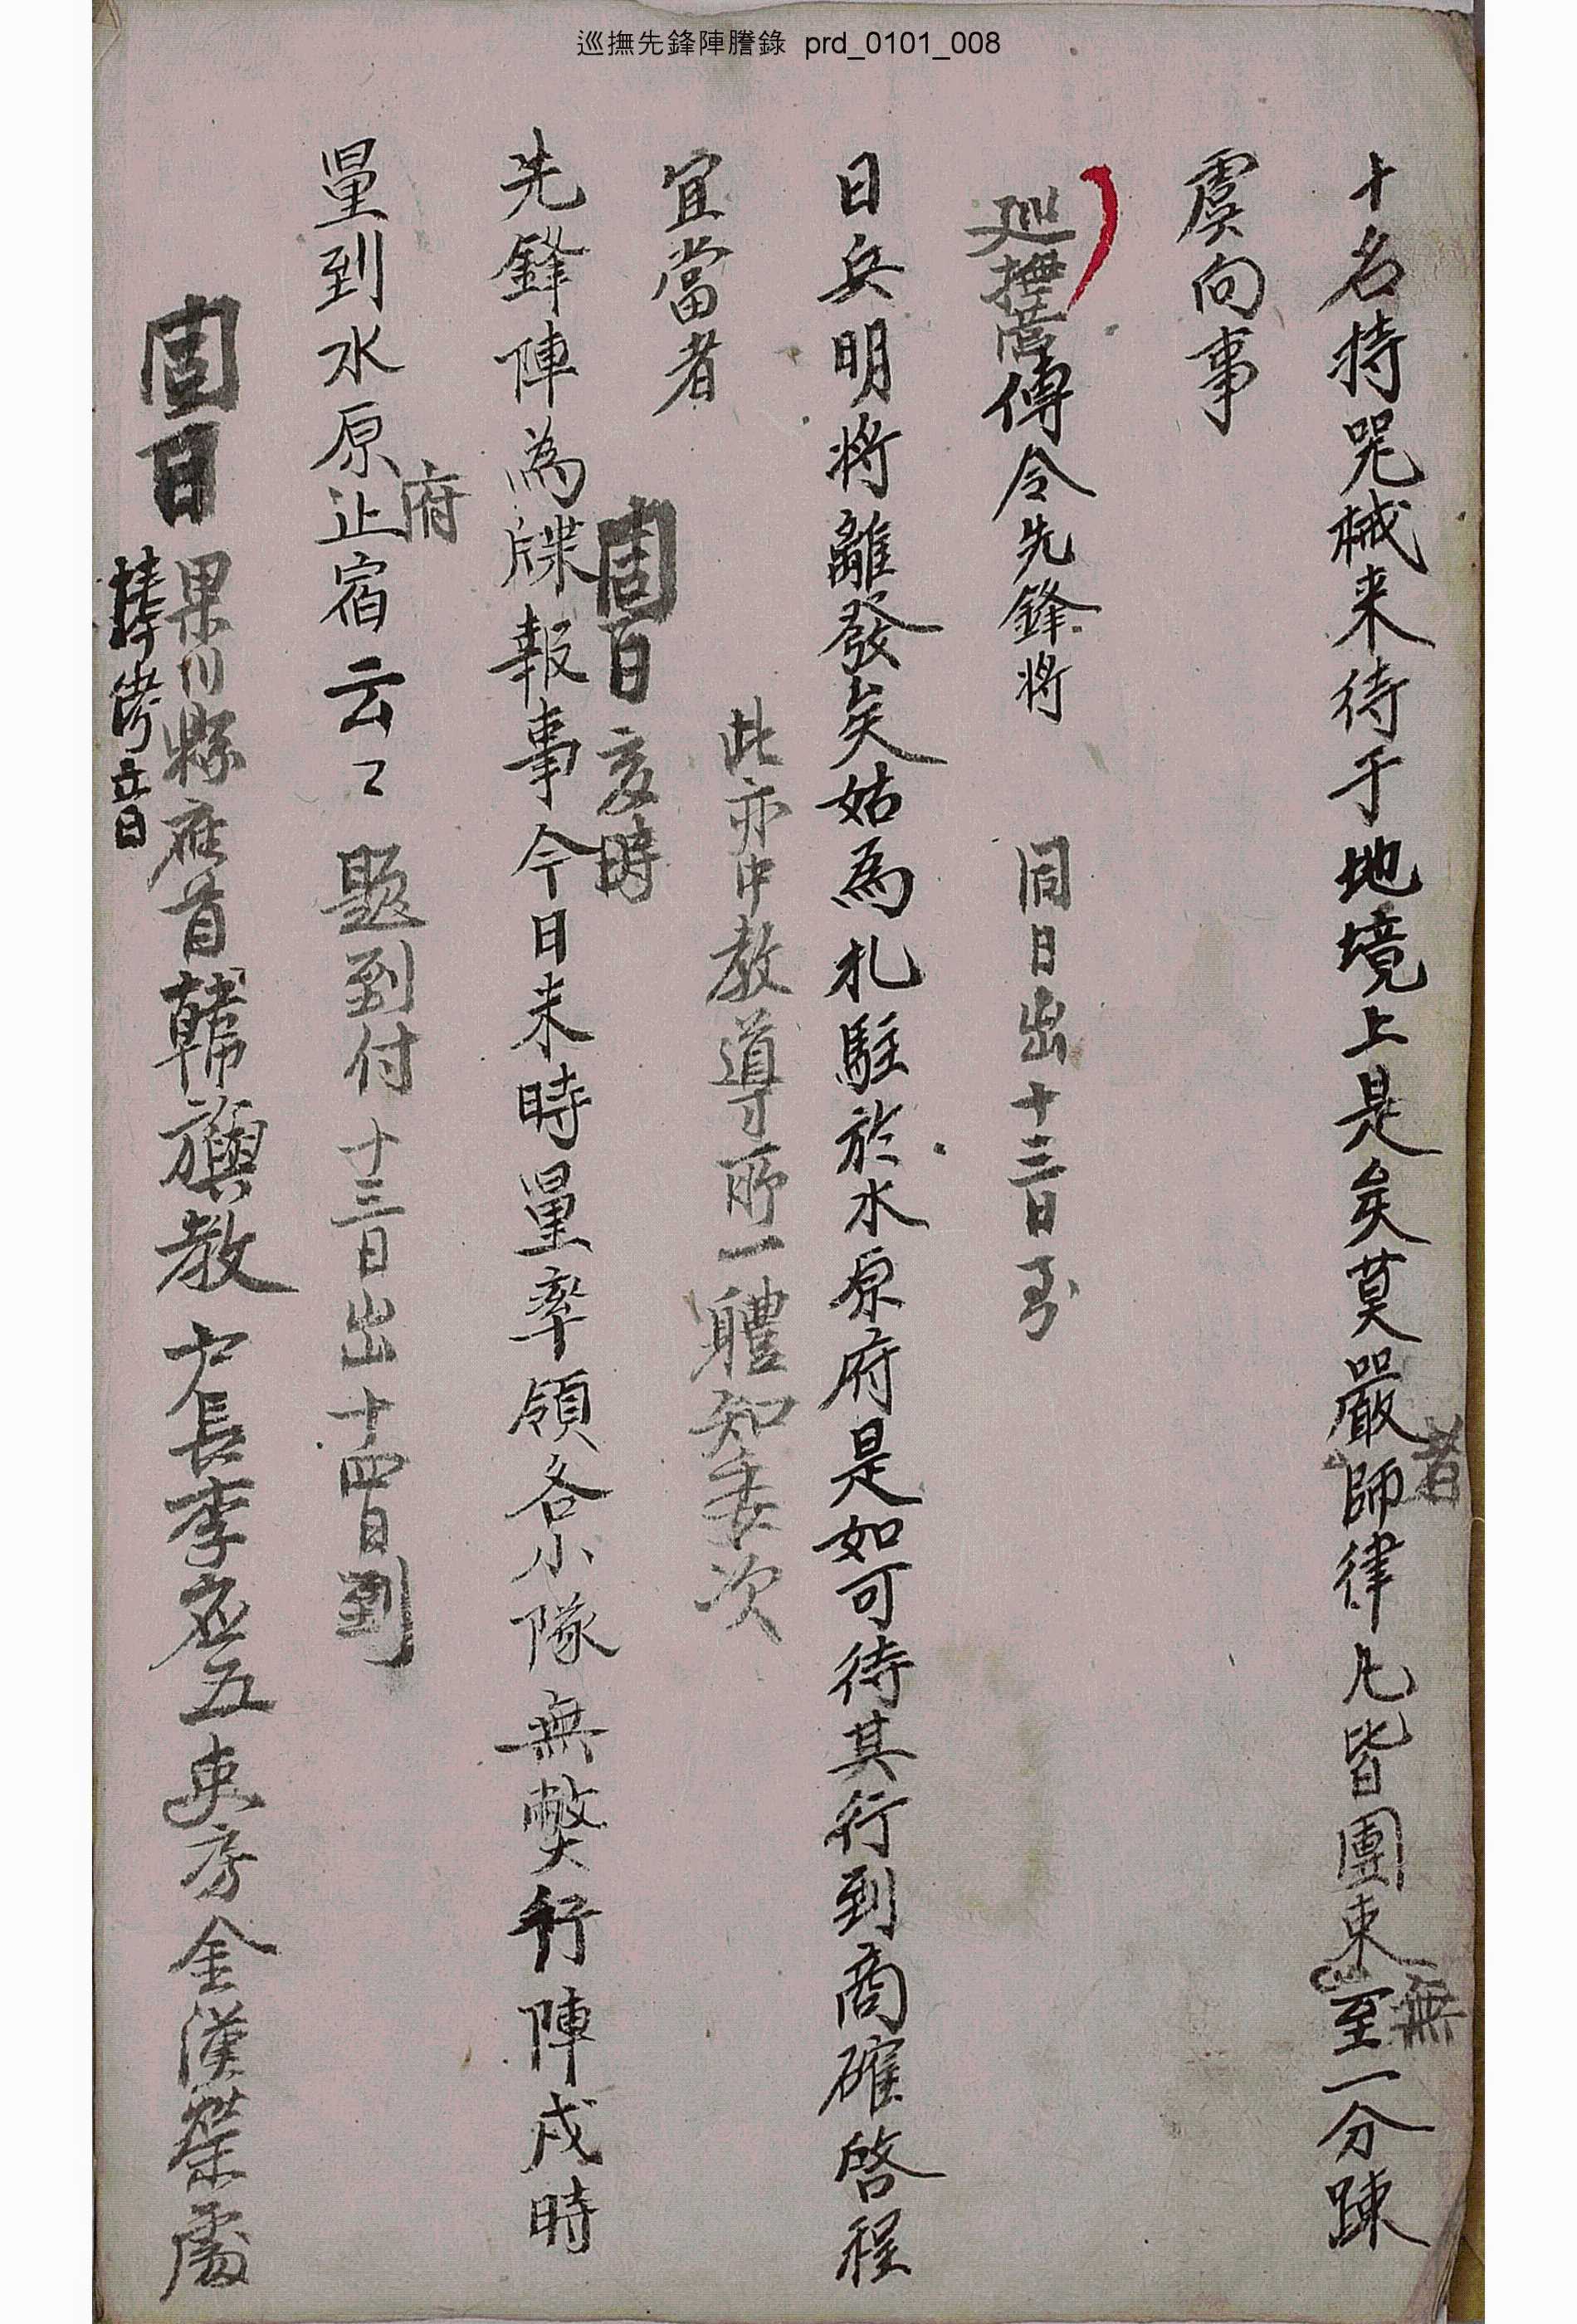 巡撫先鋒陣謄錄 prd_0101_008
十名持咒械来待于地境上是矣莫嚴師律凡皆團束至一分踈
者
無
虞向事
巡撫營傳令先鋒将 同日出十三日到
日兵明将離發矣姑為札駐於水原府是如可待其行到商確啓程
此亦中教導所一軆知委次
宜當者
同日亥時
先鋒陣為牒報事今日未時量率領各小隊無弊行陣戌時
府
量到水原止宿云々 題到付 十三日出十四日到
同日 果川縣座首韓旟教 戶長李應五 吏房金漢榮處